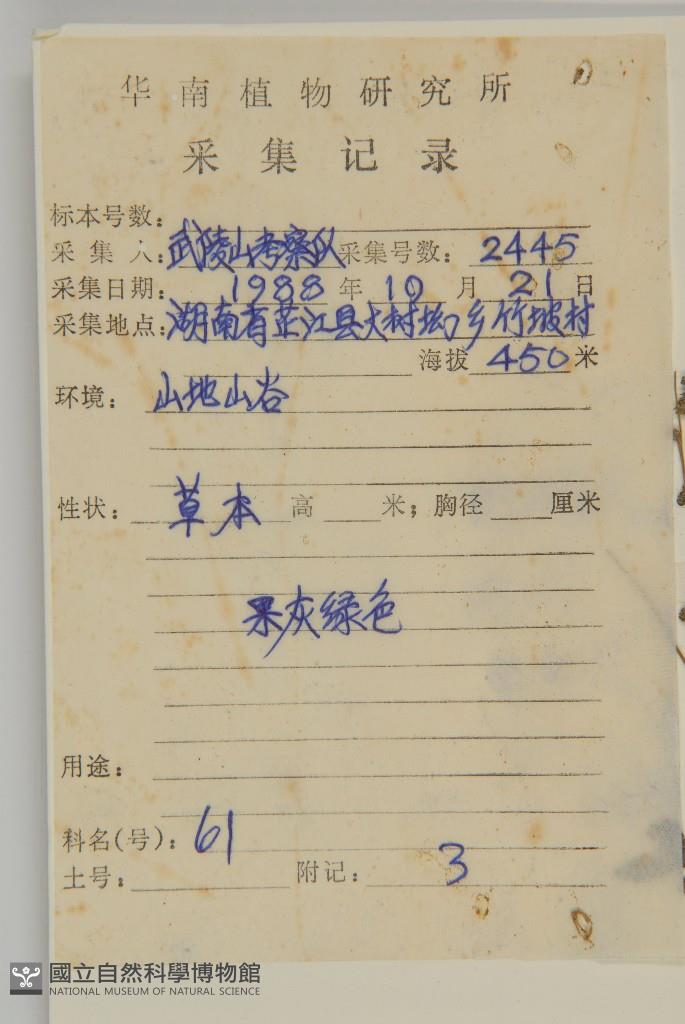 华南植物研究所
采集记录
标本号数:
采集人:武陵山考察队 采集号数: 2445
采集日期: 1988 年 10 月 21 日
采集地点:湖南省芷江县大树坳乡竹坡村
海拔 450 米
环境: 山地山谷
性状: 草本 高 米; 胸径 厘米
果灰绿色
用途:
科名(号): 61
土号: 附记: 3
國立自然科學博物館
NATIONAL MUSEUM OF NATURAL SCIENCE